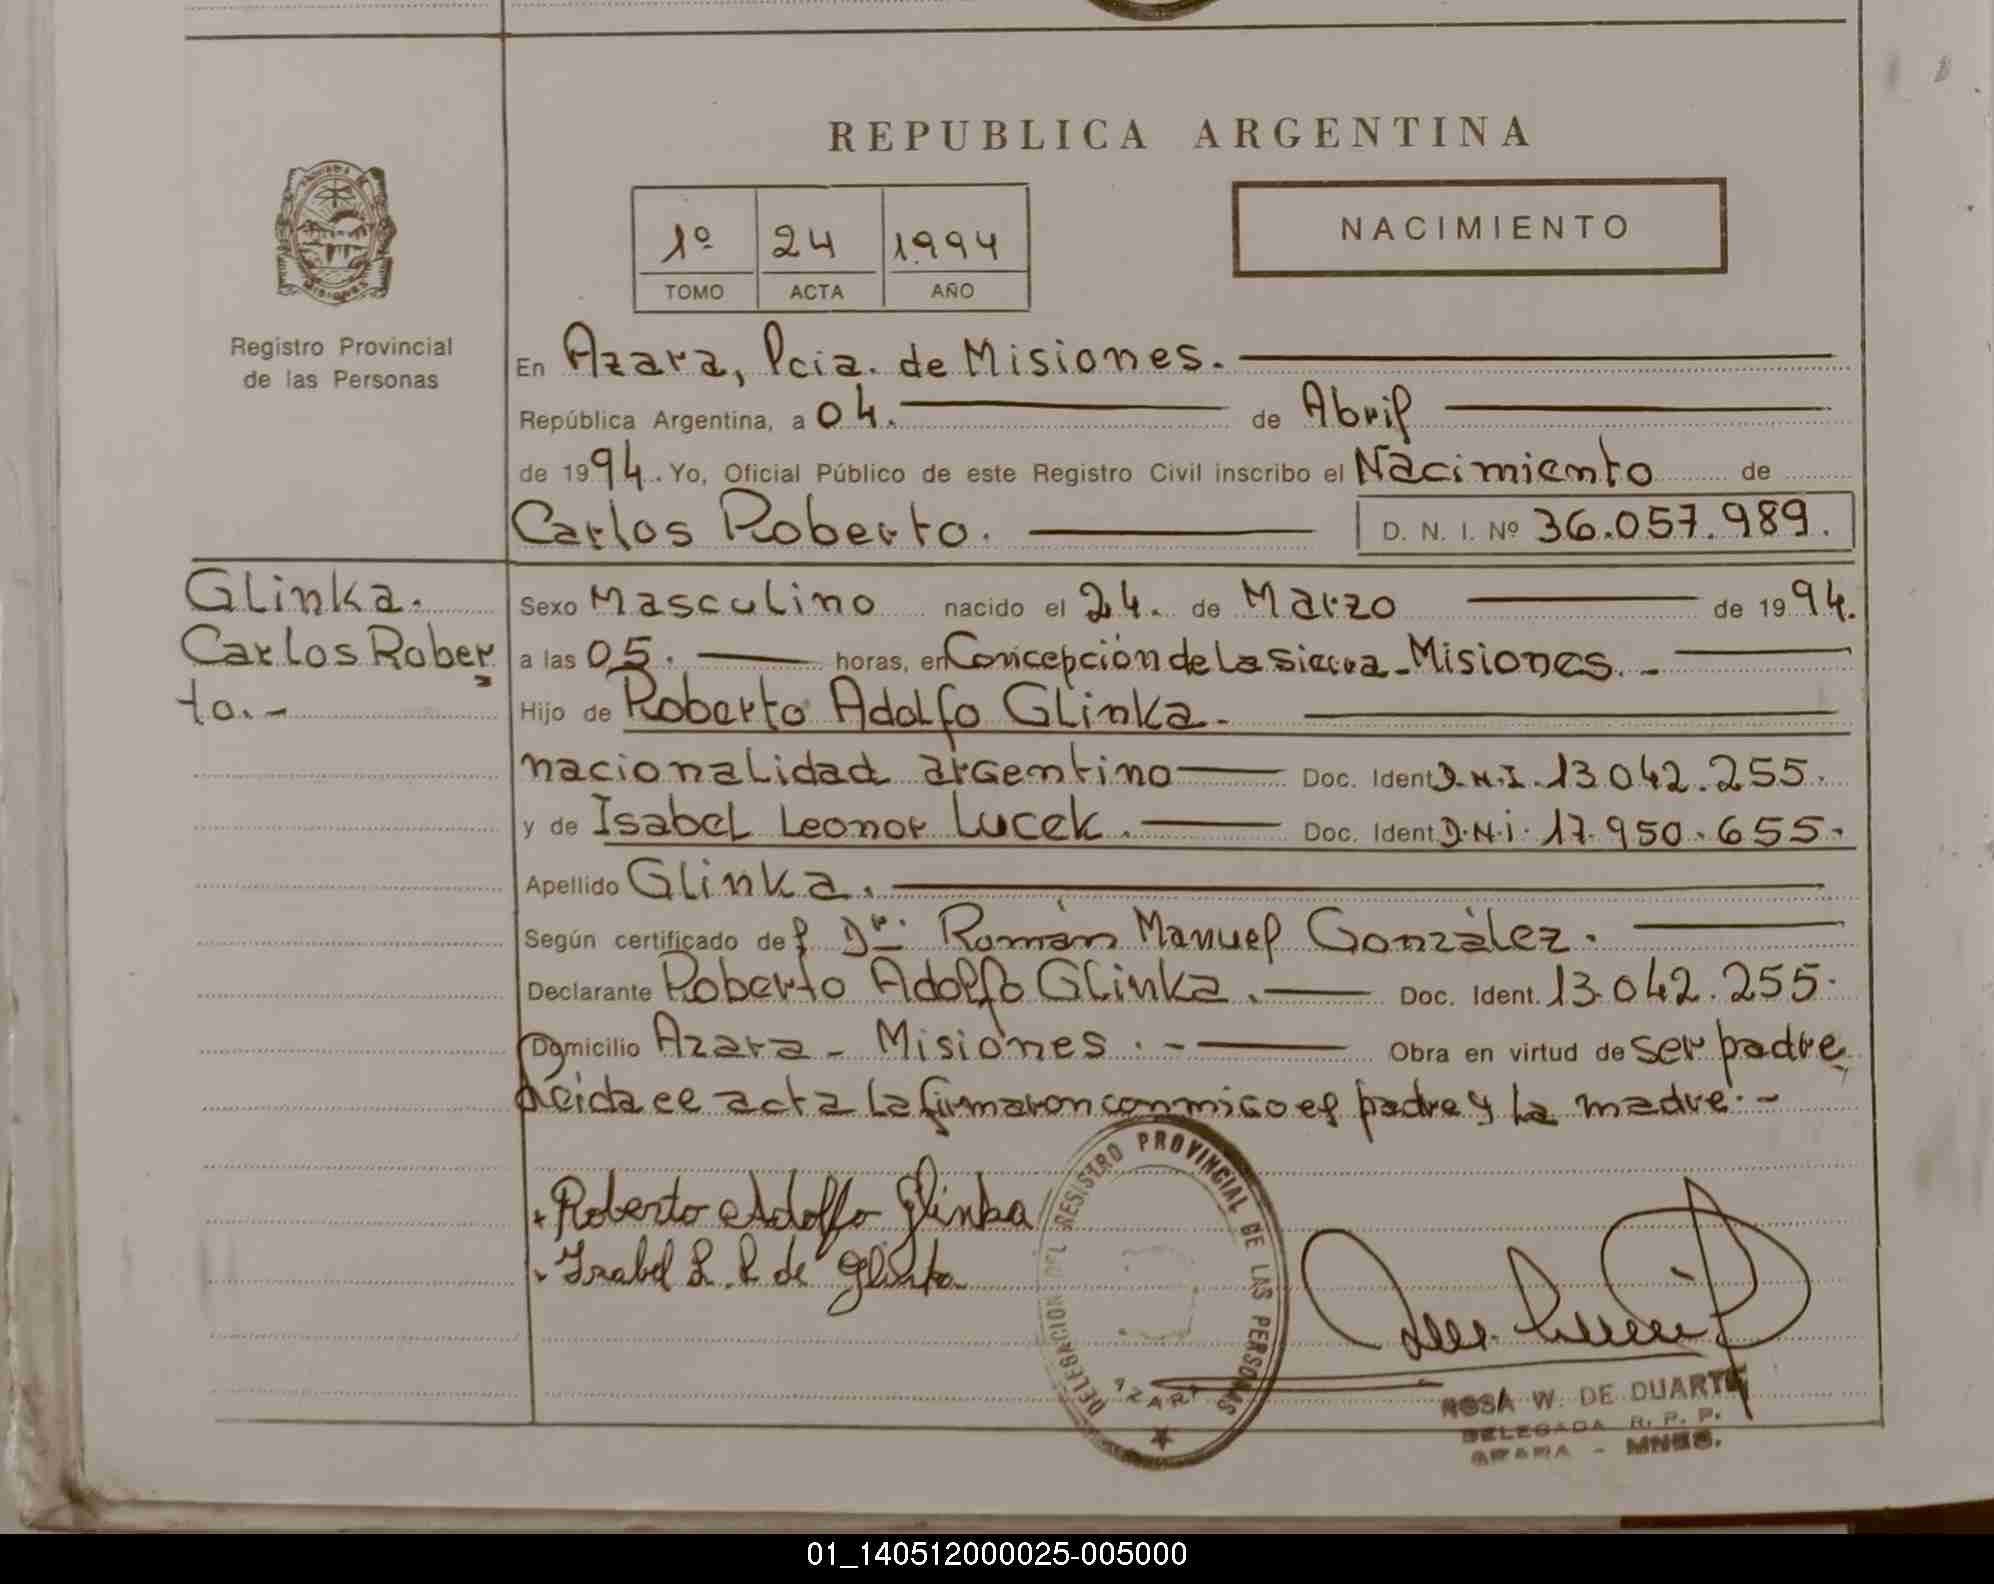 REPUBLICA ARGENTINA
NACIMIENTO
1º 24 1994
TOMO ACTA AÑO
MISIONES
Registro Provincial
de las Personas
En Azara, Pcia. de Misiones.
República Argentina, a 04. de Abril
de 1994. Yo, Oficial Público de este Registro Civil inscribo el Nacimiento de
Carlos Roberto. D. N. I. Nº 36.057.989.
Glinka.
Carlos Rober
to.-
Sexo Masculino nacido el 24. de Marzo de 1994.
a las 05. horas, en Concepción de La Sierra - Misiones. -
Hijo de Roberto Adolfo Glinka.
nacionalidad argentino Doc. Ident D.N.I. 13.042.255.
y de Isabel Leonor Lucek. Doc. Ident D.N.i. 17.950.655.
Apellido Glinka.
Según certificado del Dr. Román Manuel González.
Declarante Roberto Adolfo Glinka. Doc. Ident. 13.042.255.
Domicilio Azara - Misiones. - Obra en virtud de ser padre
Leida ee acta la firmaron conmigo el padre y la madre. -
Roberto Adolfo Glinka
Isabel L. L. de Glinka
DELEGACION DEL REGISTRO PROVINCIAL DE LAS PERSONAS
AZARA
ROSA W. DE DUARTE
DELEGADA R. P. P.
AZARA - MNES.
01_140512000025-005000